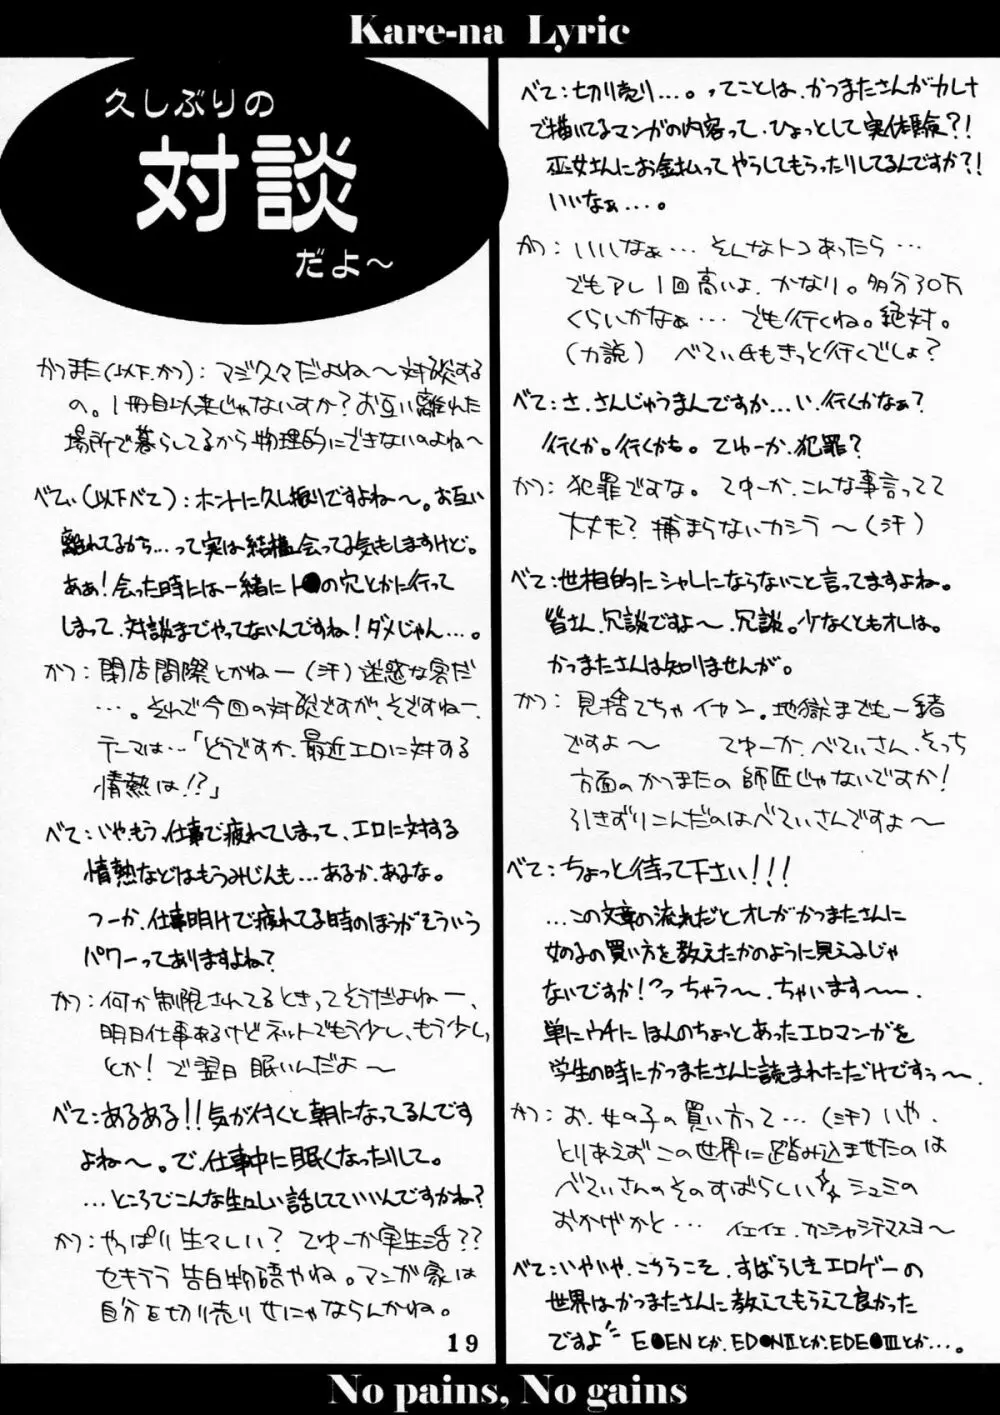 Kare-na Lyric
久しぶりの
対談
だよ～
かつまた(以下、かつ)：マジ久々だよね～対談する
の。1冊目以来じゃないすか？お互い離れた
場所で暮らしてるから物理的にできないのよね～
べてぃ(以下べて)：ホントに久し振りですよね～。お互い
離れてるから…って実は結構会ってる気もしますけど。
あぁ！会った時には一緒にト●の穴とかに行って
しまって、対談までやってないんですね！ダメじゃん…。
かつ：閉店間際とかねー(汗)迷惑な客だ
…。それで今回の対談ですが、そですねー、
テーマは…「どうですか、最近エロに対する
情熱は!?」
べて：いや、もう、仕事で疲れてしまって、エロに対する
情熱などはもうみじんも…あるか、あるな。
つーか、仕事明けで疲れてる時のほうがそういう
パワーってありますよね？
かつ：何か制限されてるときってそうだよねー、
明日仕事あるけどネットでもう少し、もう少し、
とか！で翌日眠いんだよ～
べて：あるある!!気が付くと朝になってるんです
よね～。で、仕事中に眠くなったりして。
…ところでこんな生々しい話してていいんですかね？
かつ：やっぱり生々しい？てゆーか実生活??
セキララ告白物語やね。マンガ家は
自分を切り売りせにゃならんかね。
19
べて：切り売り…。ってことは、かつまたさんがカレナ
で描いてるマンガの内容って、ひょっとして実体験?!
巫女さんにお金払ってやらしてもらったりしてるんですか?!
いいなぁ…。
かつ：いいなぁ…そんなトコあったら…
でもアレ1回高いよ、かなり。多分30万
くらいかなぁ…でも行くね。絶対。
(力説) べてぃ氏もきっと行くでしょ？
べて：さ、さんじゅうまんですか…い、行くかなぁ？
行くか。行くかも。てゆーか、犯罪？
かつ：犯罪ですな。てゆーか、こんな事言ってて
大丈夫？捕まらないカシラ～(汗)
べて：世相的にシャレにならないこと言ってますよね。
皆さん、冗談ですよ～、冗談。少なくともオレは。
かつまたさんは知りませんが。
かつ：見捨てちゃイヤン。地獄までも一緒
ですよ～ てゆーか、べてぃさん、そっち
方面のかつまたの師匠じゃないですか！
引きずりこんだのはべてぃさんですよ～
べて：ちょっと待って下さい!!!
…この文章の流れだとオレがかつまたさんに
女の子の買い方を教えたかのように見えるじゃ
ないですか！?っちゃう～、ちゃいます～～、
単にウチにほんのちょっとあったエロマンガを
学生の時にかつまたさんに読まれただけですぅ～、
かつ：お、女の子の買い方って…(汗)いや、
とりあえずこの世界に踏み込ませたのは
べてぃさんのそのすばらしい☆シュミの
おかげかと… イエイエ、カンシャシテマスヨ～
べて：いやいや、こちらこそ、すばらしきエロゲーの
世界はかつまたさんに教えてもらえて良かった
ですよ E●ENとか、ED●NⅡとか、EDE●Ⅲとか…。
No pains, No gains